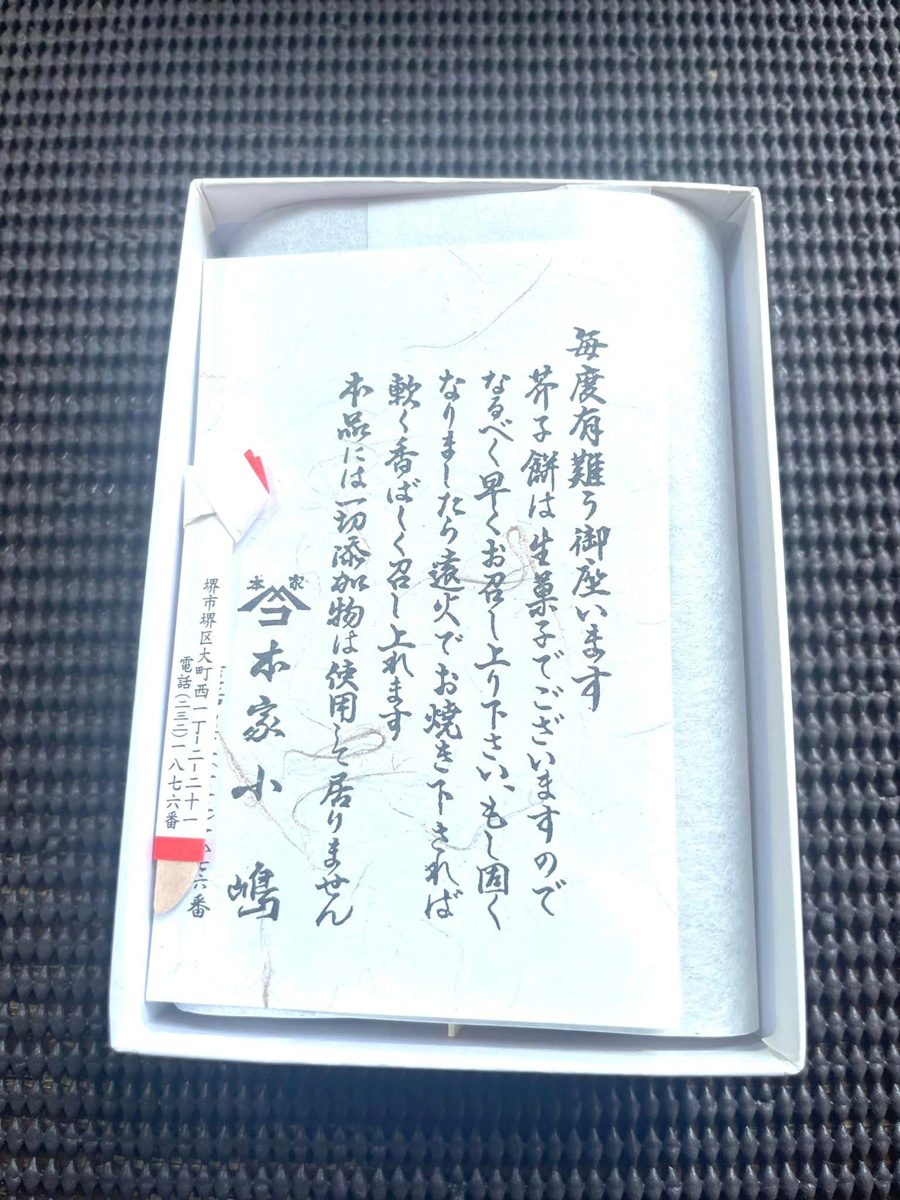 毎度有難う御座います
芥子餅は生菓子でございますので
なるべく早くお召し上り下さい、もし固く
なりましたら遠火でお焼き下されば
軟く香ばしく召し上れます
本品には一切添加物は使用して居りません
本家
コ
本家小嶋
堺市堺区大町西一丁ー二ー二十一
電話(二三二)一八七六番
六番